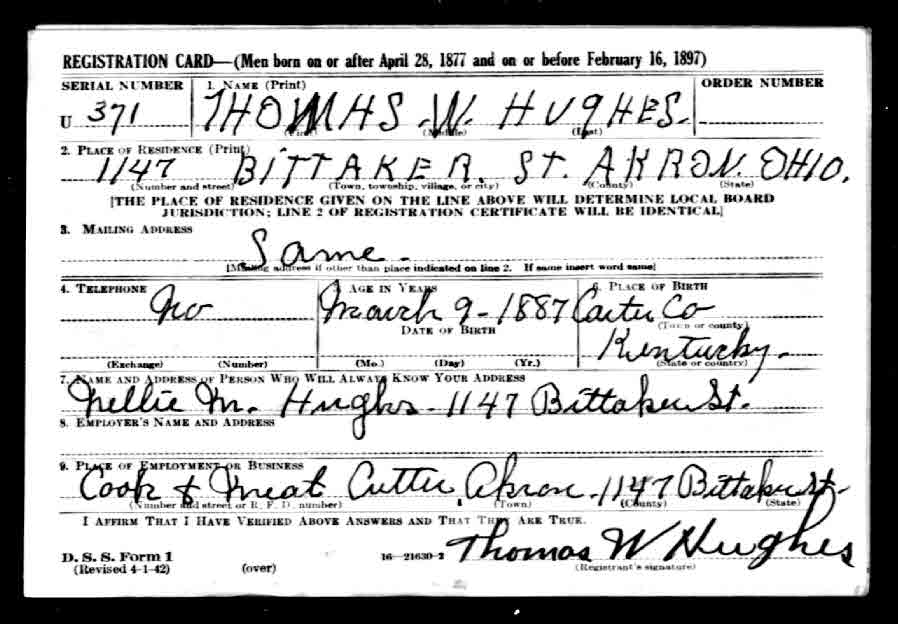 REGISTRATION CARD—(Men born on or after April 28, 1877 and on or before February 16, 1897)
SERIAL NUMBER 1. NAME (Print) ORDER NUMBER
U 371 THOMAS W. HUGHES.
(First) (Middle) (Last)
2. PLACE OF RESIDENCE (Print)
1147 BITTAKER. ST. AKRON. OHIO.
(Number and street) (Town, township, village, or city) (County) (State)
[THE PLACE OF RESIDENCE GIVEN ON THE LINE ABOVE WILL DETERMINE LOCAL BOARD
JURISDICTION; LINE 2 OF REGISTRATION CERTIFICATE WILL BE IDENTICAL]
3. MAILING ADDRESS
Same.
[Mailing address if other than place indicated on line 2. If same insert word same]
4. TELEPHONE 5. AGE IN YEARS 6. PLACE OF BIRTH
No March 9-1887 Carter Co
DATE OF BIRTH (Town or county)
Kentucky.
(Exchange) (Number) (Mo.) (Day) (Yr.) (State or country)
7. NAME AND ADDRESS OF PERSON WHO WILL ALWAYS KNOW YOUR ADDRESS
Nellie M. Hughes - 1147 Bittaker St.
8. EMPLOYER'S NAME AND ADDRESS
9. PLACE OF EMPLOYMENT OR BUSINESS
Cook & Meat Cutter Akron - 1147 Bittaker St-
(Number and street or R. F. D. number) (Town) (County) (State)
I AFFIRM THAT I HAVE VERIFIED ABOVE ANSWERS AND THAT THEY ARE TRUE.
D. S. S. Form 1 16—21630-2 Thomas W Hughes
(Revised 4-1-42) (over) (Registrant's signature)